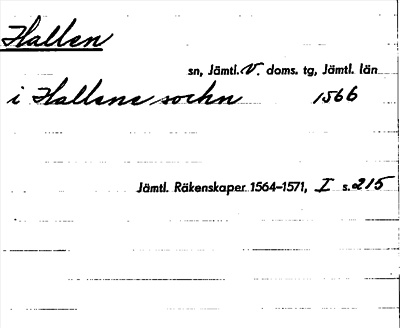 Hallen
sn, Jämtl. V. doms. tg, Jämtl. län
i Hallens sockn 1566
Jämtl. Räkenskaper 1564–1571, I s. 215